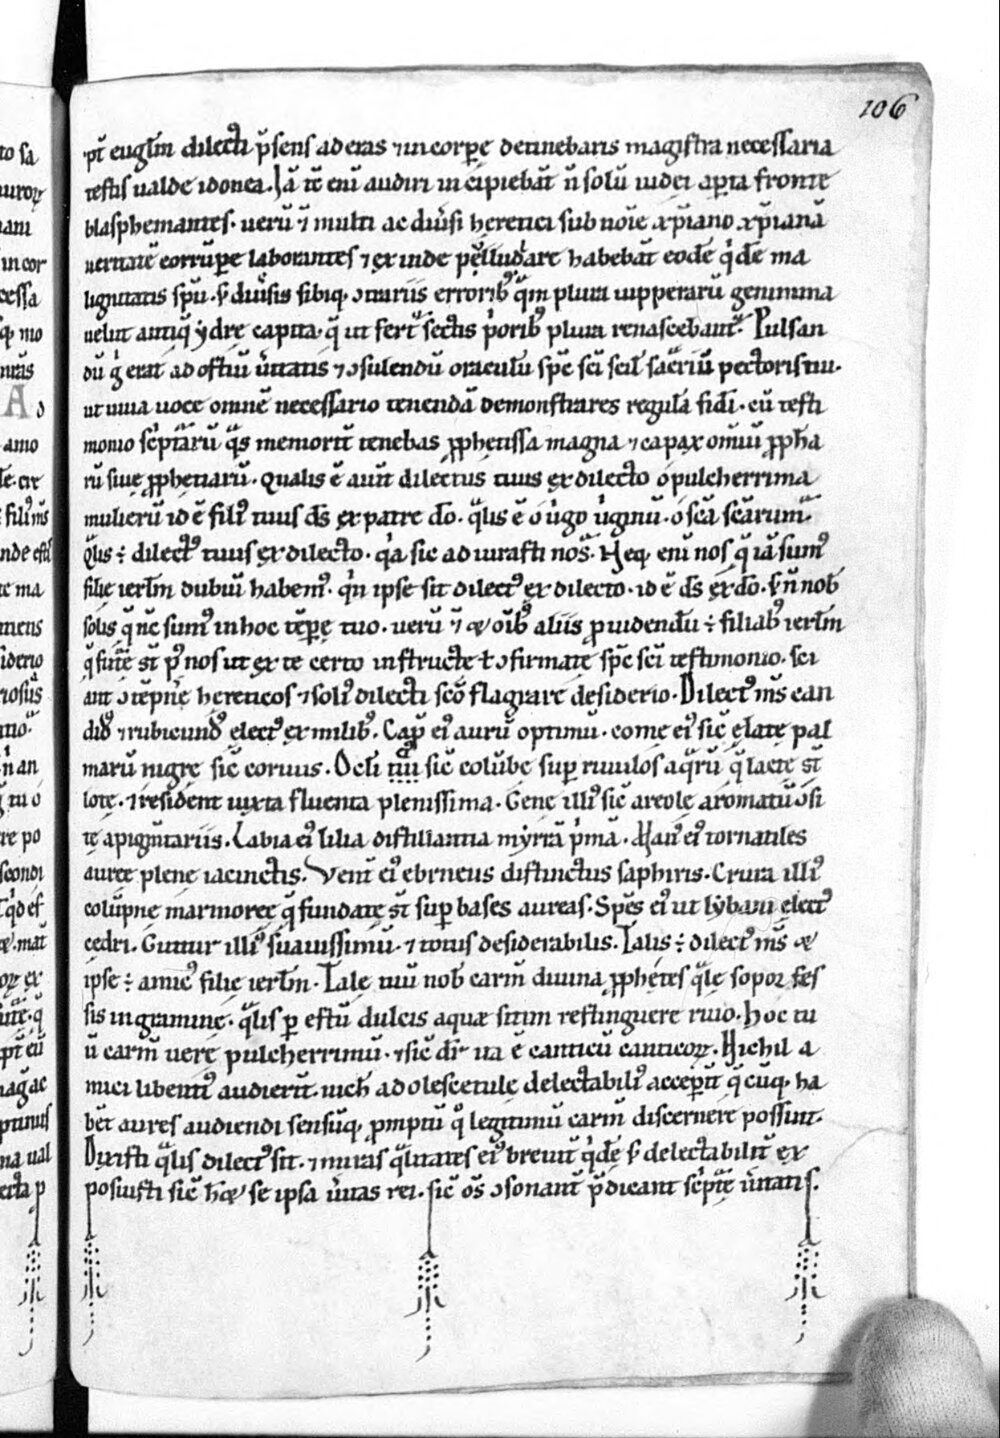 106
pt̄ euglm̄ dilecti p̄sens aderas ⁊ in corpore detinebaris magistra necessaria
testis ualde idonea. Iā tē enī audiri incipiebāt n̄ solū iudei aperta fronte
blasphemantes. uerū ⁊ multi ac diuersi heretici sub noīe xp̄iano xp̄ianā
ueritatē corrūpere laborantes ⁊ exinde
lignitatis sp̄u. diuersis sibiq; ɔtrariis errorib; q̄m plura uipperarū genimina
uelut antiq̄ ydre capita. q̄ ut fert̄ sectis p̄orib; plura renascebant̄. Pulsan
dū ḡ erat ad ostiū ueritatis ⁊ ɔsulendū oraculū sp̄c sc̄i scil sacrariū pectoris tui.
ut uiua uoce omnē necessario tenendā demonstrares regulā fidei. cū testi
monio sc̄ptararū q̄s memorit̄ tenebas prophetissa magna ⁊ capax omīu proph̄a
rū siue prophetiarū. Qualis ē aiūt dilectus tuus ex dilecto o pulcherrima
mulierū id ē fili⁹ tuus ds̄ ex patre dō. q̄lis ē o uirgo uirginū. o sc̄a sc̄arum.
Q̄lis ÷ dilect⁹ tuus ex dilecto. q̄a sic adiurasti nos. Neq; enī nos q̄ iā sum⁹
filie ierl̄m dubiū habem⁹. q̄n ipse sit dilect⁹ ex dilecto. id ē ds̄ ex dō. n̄ nob̄
solis q̄ nc̄ sum⁹ in hoc tēpore tuo. uerū ⁊ oīb; aliis prouidendū ÷ filiab; ierl̄m
q̄ futurē st̄ p⁹ nos ut ex te certo instructe ɔfirmate sp̄c sc̄i testimonio. sci
ant ɔtēpnere hereticos ⁊ soli⁹ dilecti sc̄o flagrare desiderio. Dilect⁹ m̄s can
did⁹ ⁊ rubicund⁹ elect⁹ ex milib;. Cap̄ ei⁹ aurū optimū. come ei⁹ sic̄ elate pal
marū nigre sic̄ coruus. Ocl̄i sic̄ colūbe super riuulos aq̄rū q̄ lacte st̄
lote. ⁊ resident iuxta fluenta plenissima. Gene illi⁹ sic̄ areole aromatū ɔsi
te a pigm̄tariis. Labia ei⁹ lilia distillantia myrrā p̄mā. Man⁹ ei⁹ tornatiles
auree plene iacinctis. Vent̄ ei⁹ eburneus distinctus saphiris. Crura illi⁹
colūpne marmoree q̄ fundate st̄ super bases aureas. Spēs ei⁹ ut lybani elect⁹
cedri. Guttur illi⁹ suauissimū. ⁊ totus desiderabilis. Talis ÷ dilect⁹ m̄s
ipse ÷ amic⁹ filie ierl̄m. Tale tuū nob̄ carm̄ diuina prophetes q̄le sopor fes
sis in gramine. q̄lis per estū dulcis aquæ sitim restinguere riuo. Hoc tu
ū carm̄ uere pulcherrimū. ⁊ sic dr̄ ita ē canticū canticoꝝ. Nichil a
mici libenti⁹ audierūt. nich̄ adolescētule delectabili⁹ acceper̄t q̄cūq; ha
bēt aures audiendi sensūq; promptū q̄ legitimū carm̄ discernere possint.
Dixisti q̄lis dilect⁹ sit. ⁊ miras q̄litates ei⁹ breuit̄ q̄dē delectabilit̄ ex
posuisti sic̄ se ipsa ūitas rei. sic̄ oms̄ ɔsonant̄ p̄dicant sc̄pture ūitatis.